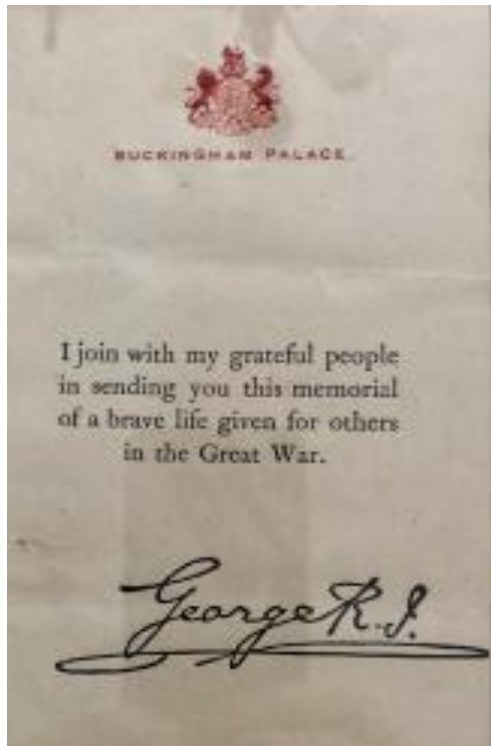 BUCKINGHAM PALACE.
I join with my grateful people
in sending you this memorial
of a brave life given for others
in the Great War.
George R.I.